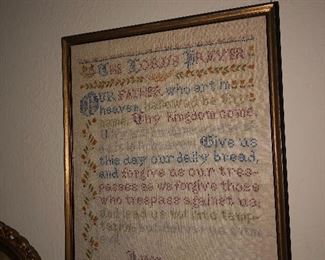 The Lord's Prayer
Our Father who art in
heaven, hallowed be thy
name. Thy kingdom come,
Give us
this day our daily bread,
and forgive us our tres-
passes as we forgive those
who trespass against us;
and lead us not into temp-
tation, but deliver us from
evil.